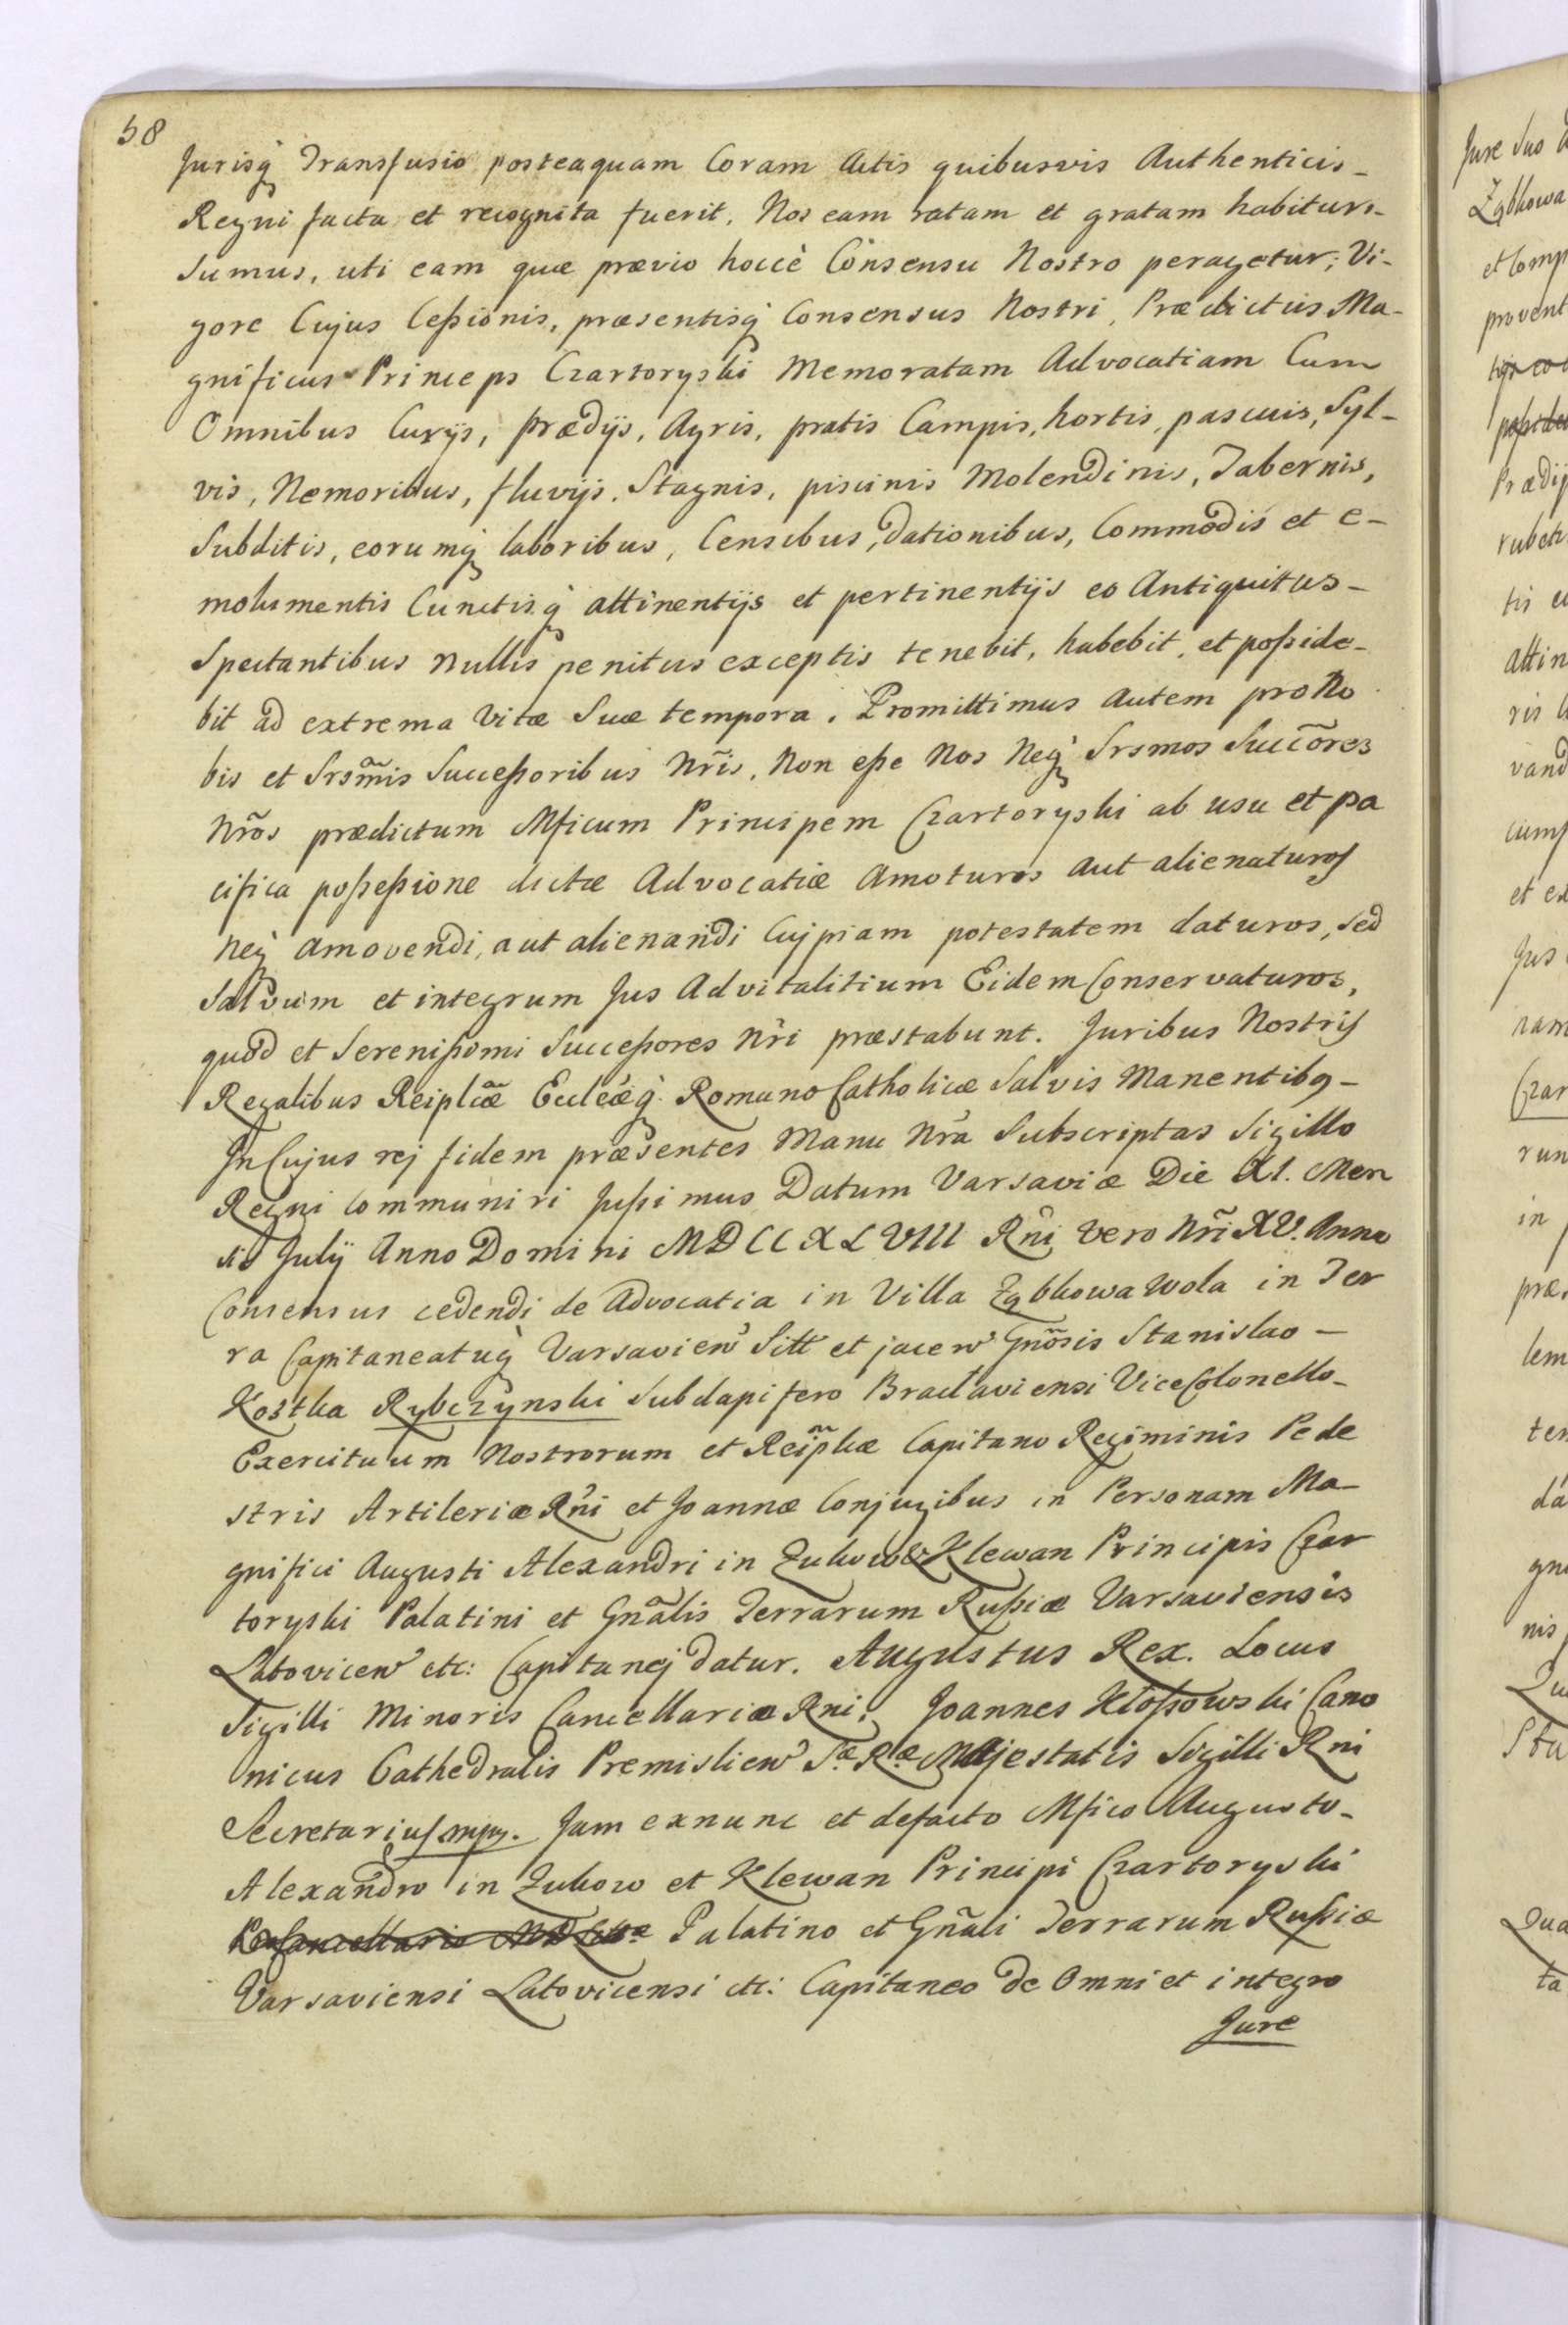 58
Jurisq̀ Transfusio posteaquam Coram Actis quibusvis Authenticis-
Regni facta et recognita fuerit, Nos eam ratam et gratam habituri-
Sumus, uti eam quæ prævio hoccè Consensu Nostro peragetur; Vi-
gore Cujus Cessionis, præsentisq̀ Consensus Nostri, Prædictus Ma-
gnificus Princeps Czartoryski Memoratam Advocatiam Cum
Omnibus Curijs, prædijs, Agris, pratis Campis, hortis, pascuis, Syl-
vis, Nemoribus, fluvijs, Stagnis, piscinis Molendinis, Tabernis,
Subditis, eorumq̀ laboribus, Censibus, Dationibus, Commodis et e-
molumentis Cunctisq̀ attinentijs et pertinentijs eo Antiquitus-
Spectantibus Nullis penitus exceptis tenebit, habebit, et posside-
bit ad extrema Vitæ Suæ tempora. Promittimus Autem pro No
bis et Srsm̃is Successoribus Nr̃is, Non esse Nos Neq̀ Srsmos Succõres
Nr̃os prædictum Mficum Principem Czartoryski ab usu et pa
cifica possessione dictæ Advocatiæ Amoturos aut alienaturos
Neq̀ amovendi, aut alienandi Cujpiam potestatem daturos, Sed
Salvum et integrum Jus Advitalitium Eidem Conservaturos,
quod et Serenissimi Successores Nr̃i præstabunt. Juribus Nostris
Regalibus Reiplicæ̃ Ecclẽæq̀ Romano Catholicæ Salvis Manentibq-
In Cujus rej fidem præsentes Manu Nr̃a Subscriptas Sigillo
Regni Communiri Jussimus Datum Varsaviæ Die XI. Men
sis Julij Anno Domini MDCCXLVIII Rñi Vero Nr̃i XV. Anno
Consensus cedendi de Advocatia in Villa Ząbkowa Wola in Ter
ra Capitaneatuq̀ Varsavien̄ Sitt et jacen̄ Gnõsis Stanislao-
Kostka Rybczynski Subdapifero Braclaviensi Vice Colonello-
Exercituum Nostrorum et Reip̃licæ Capitano Regiminis Pede
stris Artileriæ Rñi et Joannæ Conjugibus in Personam Ma-
gnifici Augusti Alexandri in Zukow & Klewan Principis Czar
toryski Palatini et Gnãlis Terrarum Russiæ Varsaviensis
Latovicen̄ etc: Capitanej datur. Augustus Rex. Locus
Sigilli Minoris Cancellariæ Rni; Joannes Kłossowski Cano
nicus Cathedralis Premislien̄ S.æ R.æ Majestatis Sigilli Rni
Secretarius mpp. Jam exnunc et defacto Mfico Augusto-
Alexandro in Zukow et Klewan Principi Czartoryski
Palatino et Gñali Terrarum Russiæ
Varsaviensi Latovicensi etc: Capitaneo de Omni et integro
Jure
Jure Suo
Ząbkowa
et Comp
provent
Prædij
rubet
attin
ris
vand
cump
et ex
Jus
ram
Czar
run
in
præ
lem
ten
da
gni
nis
Stu
Qua
ta